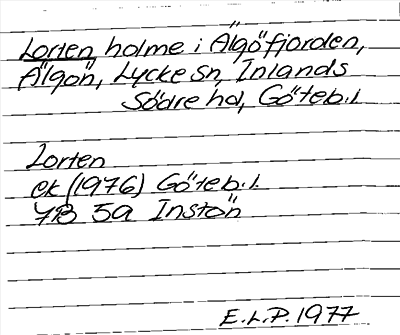 Lorten, holme i Älgöfjorden,
Älgön, Lycke sn, Inlands
Södre hd, Göteb.l.
Lorten
ek (1976) Göteb.l.
7B 5a Instön
E.L.P. 1977